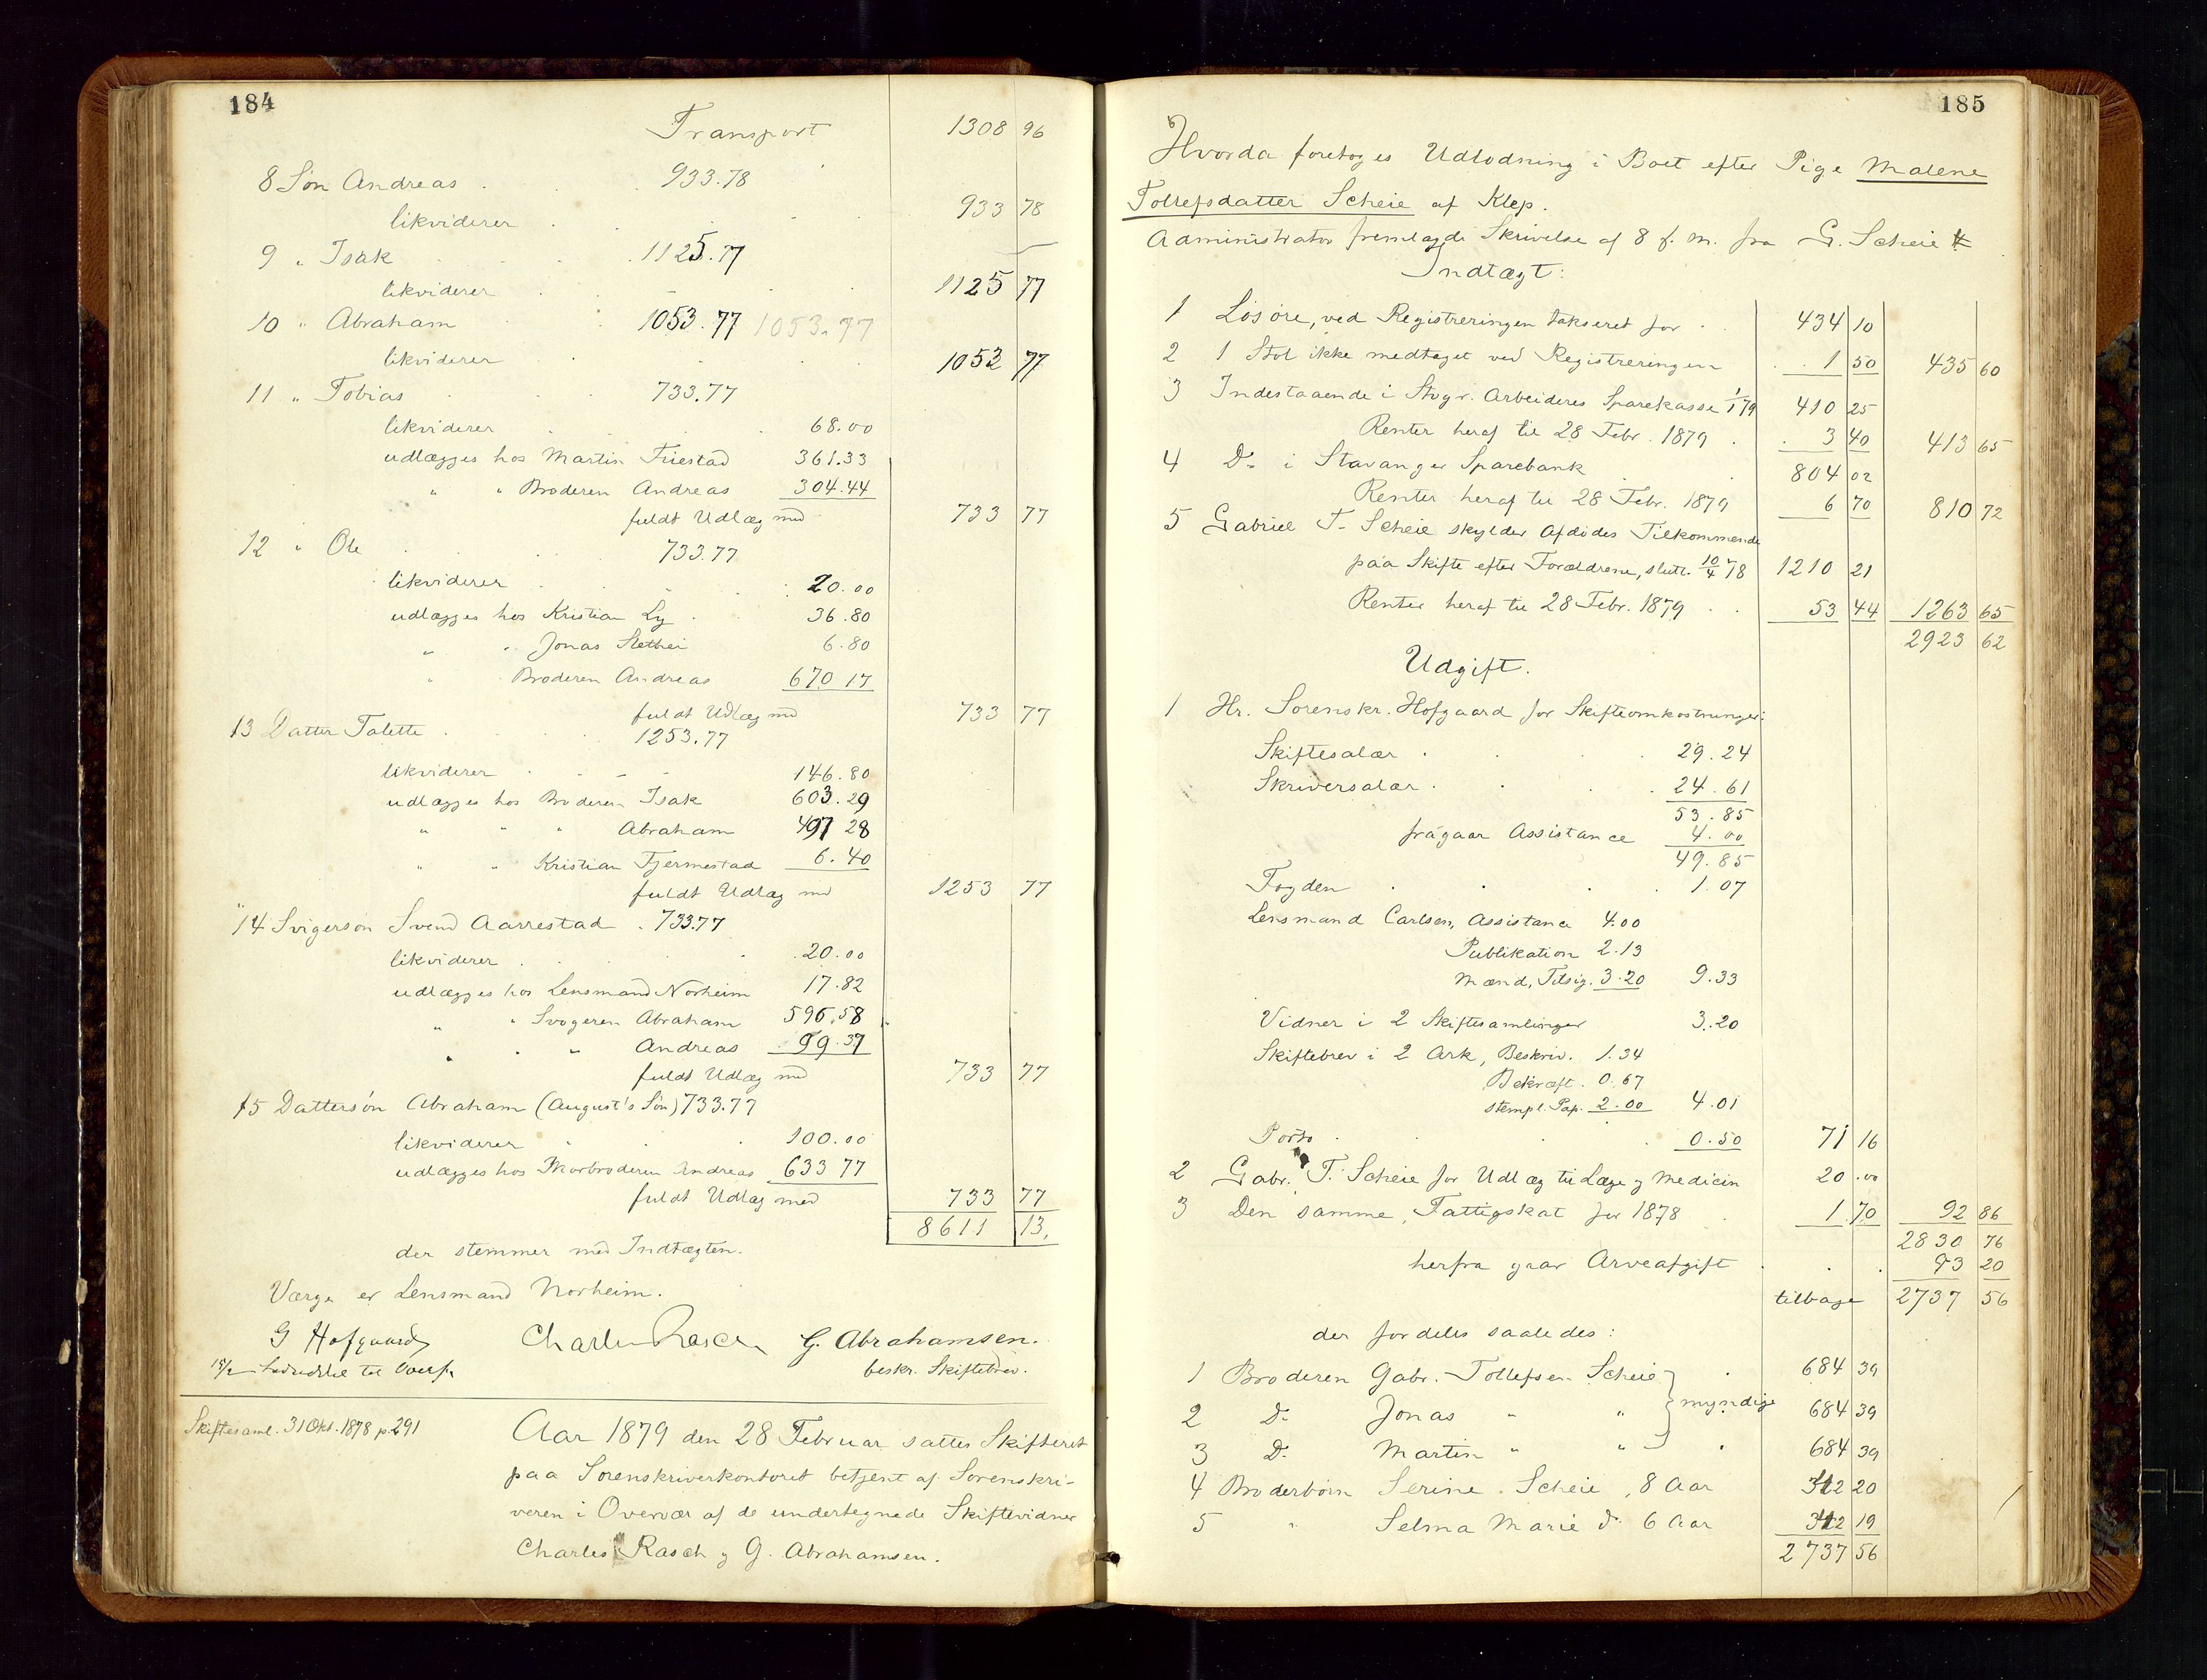 184
Transport 1308 96
8 Søn Andreas . 933.78
likviderer 933 78
9 " Isak 1125.77
likviderer 1125 77
10 " Abraham 1053.77 1053.77
likviderer 1053 77
11 " Tobias 733.77
likviderer 68.00
udlægges hos Martin Friestad 361.33
" " Broderen Andreas 304.44
fuldt Udlæg med 733 77
12 " Ole 733.77
likviderer 20.00
udlægges hos Kristian Ly 36.80
" " Jonas 6.80
" Broderen Andreas 670 17
fuldt Udlæg med 733 77
13 Datter Talette 1253.77
likviderer 146.80
udlægges hos Broderen Isak 603.29
" " " Abraham 497 28
" " Kristian Tjermestad 6.40
fuldt Udlæg med 1253 77
14 Svigersøn Svend Aarrestad . 733.77
likviderer 20.00
udlægges hos Lensmand Norheim 17.82
" " Svogeren Abraham 596.58
" " " Andreas 99.37
fuldt Udlæg med 733 77
15 Dattersøn Abraham (August's Søn) 733.77
likviderer 100.00
udlægges hos Morbroderen Andreas 633 77
fuldt Udlæg med 733 77
8611 13.
der stemmer med Indtægten.
Værge er Lensmand Norheim.
G Hofgaard Charles Rasch G. Abrahamsen.
beskr. Skiftebrev.
Skiftesaml. 31 Okt. 1878 p. 291
Aar 1879 den 28 Februar sattes Skifteret
paa Sorenskriverkontoret betjent af Sorenskri-
veren i Overvær af de undertegnede Skiftevidner
Charles Rasch og G. Abrahamsen.
185
Hvorda foretoges Udlodning i Boet efter Pige Malene
Tollefsdatter Scheie af Klep.
Administrator fremlagde Skrivelse af 8 f. M. fra G. Scheie
Indtægt:
1 Løsøre, ved Registreringen takseret for 434 10
2 1 Stol ikke medtaget ved Registreringen 1 50 435 60
3 Indestaaende i Stvgr. Arbeideres Sparekasse 1/1 79 410 25
Renter heraf til 28 Febr. 1879 . 3 40 413 65
4 Do i Stavanger Sparebank 804 02
Renter heraf til 28 Febr. 1879 6 70 810 72
5 Gabriel T. Scheie skylder Afdødes Tilkommende
paa Skifte efter Forældrene, slutt. 10/4 78 1210 21
Renter heraf til 28 Febr. 1879 53 44 1263 65
2923 62
Udgift.
1 Hr. Sorenskr. Hofgaard for Skifteomkostninger:
Skiftesalær 29.24
Skriversalær 24.61
53.85
fragaar Assistance 4.00
49.85
Fogden 1.07
Lensmand Carlsen, Assistance 4.00
Publikation 2.13
Mænd, Tilsig. 3.20 9.33
Vidner i 2 Skiftesamlinger 3.20
Skiftebrev i 2 Ark, Beskriv. 1.34
Bekræft. 0.67
stempl. Pap. 2.00 4.01
Porto 0.50 71 16
2 Gabr. T. Scheie for Udlæg til Læge og Medicin 20 .00
3 Den samme, Fattigskat for 1878 1.70 92 86
2830 76
herfra gaar Arveafgift 93 20
tilbage 2737 56
der fordeles saaledes:
1 Broderen Gabr. Tollefsen Scheie } 684 39
2 Do Jonas " " } myndige 684 39
3 Do Martin " " } 684 39
4 Broderbørn Serine Scheie, 8 Aar 342 20
5 " Selma Marie Do 6 Aar 342 19
2737 56